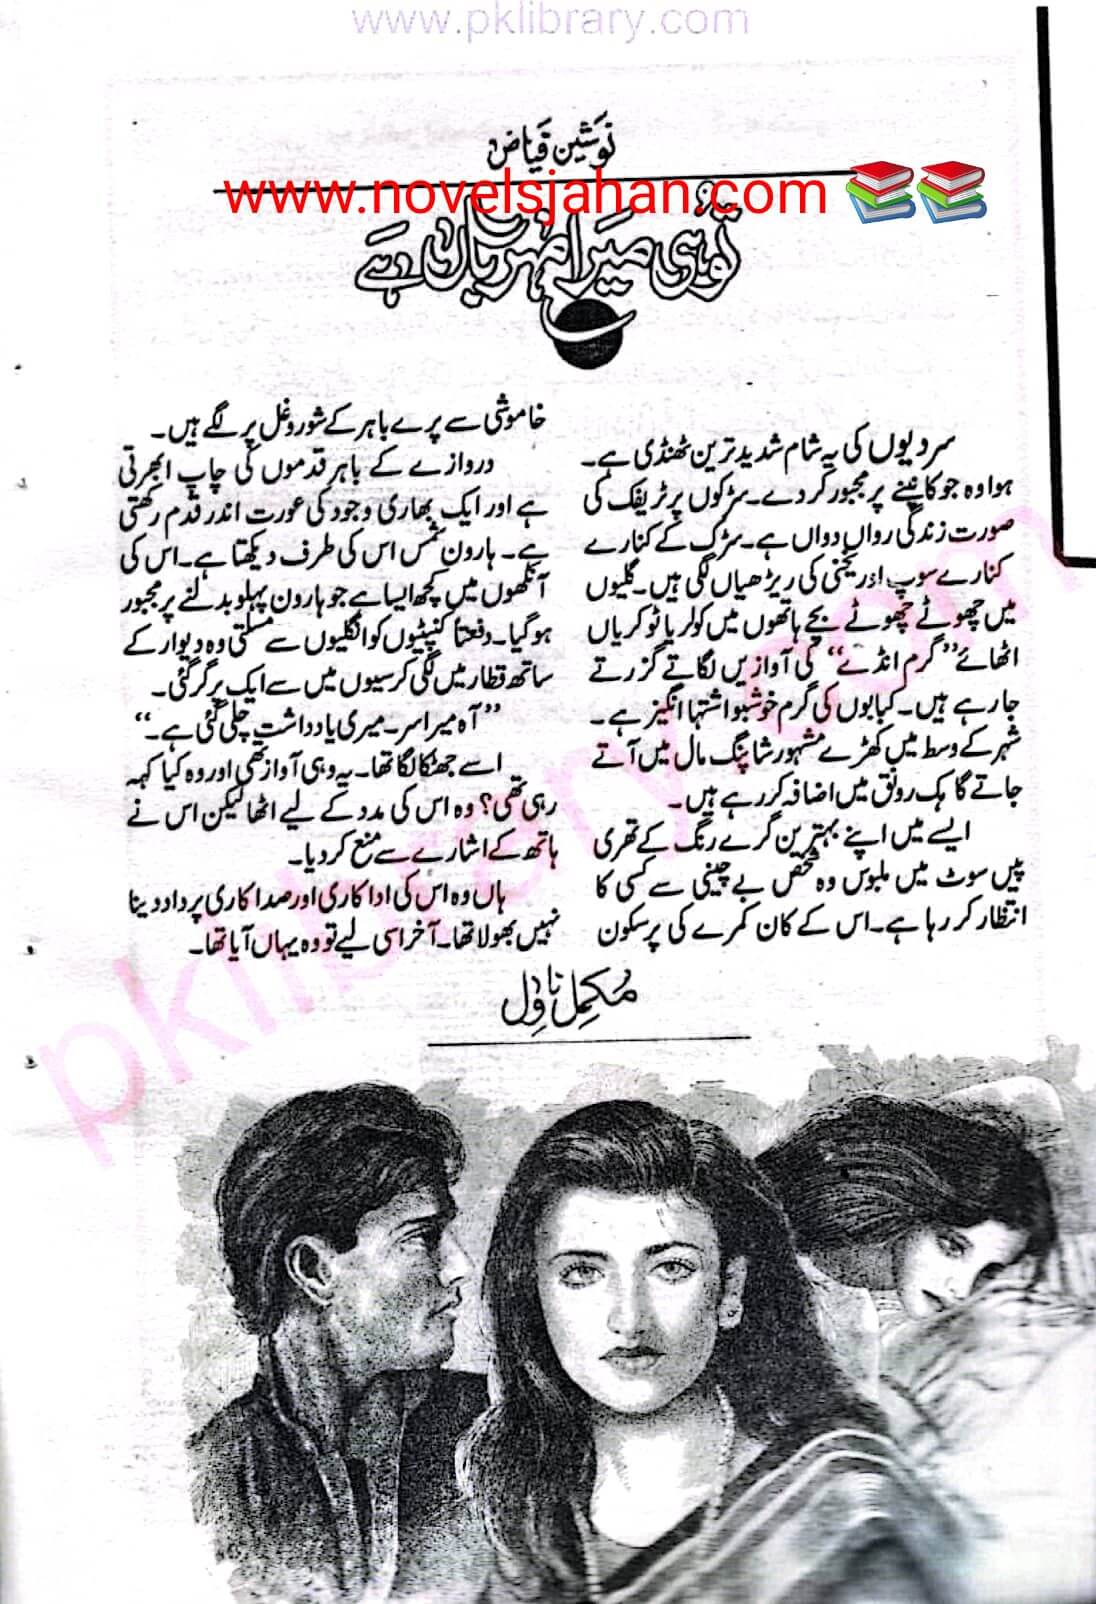 www.pklibrary.com
نوشین فیاض
www.novelsjahan.com
تو ہی میرا مہرباں ہے
سردیوں کی یہ شام شدید ترین ٹھنڈی ہے۔
ہوا وہ جو کانپنے پر مجبور کر دے۔ سڑکوں پر ٹریفک کی
صورت زندگی رواں دواں ہے۔ سڑک کے کنارے
کنارے سوپ اور یخنی کی ریڑھیاں لگی ہیں۔ گلیوں
میں چھوٹے چھوٹے بچے ہاتھوں میں کولر یا ٹوکریاں
اٹھائے ”گرم انڈے“ کی آوازیں لگاتے گزرتے
جا رہے ہیں۔ کبابوں کی گرم خوشبو اشتہا انگیز ہے۔
شہر کے وسط میں کھڑے مشہور شاپنگ مال میں آتے
جاتے گاہک رونق میں اضافہ کر رہے ہیں۔
ایسے میں اپنے بہترین گرے رنگ کے تھری
پیس سوٹ میں ملبوس وہ شخص بے چینی سے کسی کا
انتظار کر رہا ہے۔ اس کے کان کمرے کی پرسکون
خاموشی سے پرے باہر کے شور و غل پر لگے ہیں۔
دروازے کے باہر قدموں کی چاپ ابھرتی
ہے اور ایک بھاری وجود کی عورت اندر قدم رکھتی
ہے۔ ہارون شمس اس کی طرف دیکھتا ہے۔ اس کی
آنکھوں میں کچھ ایسا ہے جو ہارون پہلو بدلنے پر مجبور
ہو گیا۔ دفعتاً کنپٹیوں کو انگلیوں سے مسلتی وہ دیوار کے
ساتھ قطار میں لگی کرسیوں میں سے ایک پر گر گئی۔
”آہ میرا سر۔ میری یادداشت چلی گئی ہے۔“
اسے جھٹکا لگا تھا۔ یہ وہی آواز تھی اور وہ کیا کہہ
رہی تھی؟ وہ اس کی مدد کے لیے اٹھا لیکن اس نے
ہاتھ کے اشارے سے منع کر دیا۔
ہاں وہ اس کی اداکاری اور صداکاری پر داد دینا
نہیں بھولا تھا۔ آخر اسی لیے تو وہ یہاں آیا تھا۔
مکمل ناول
pklibrary.com